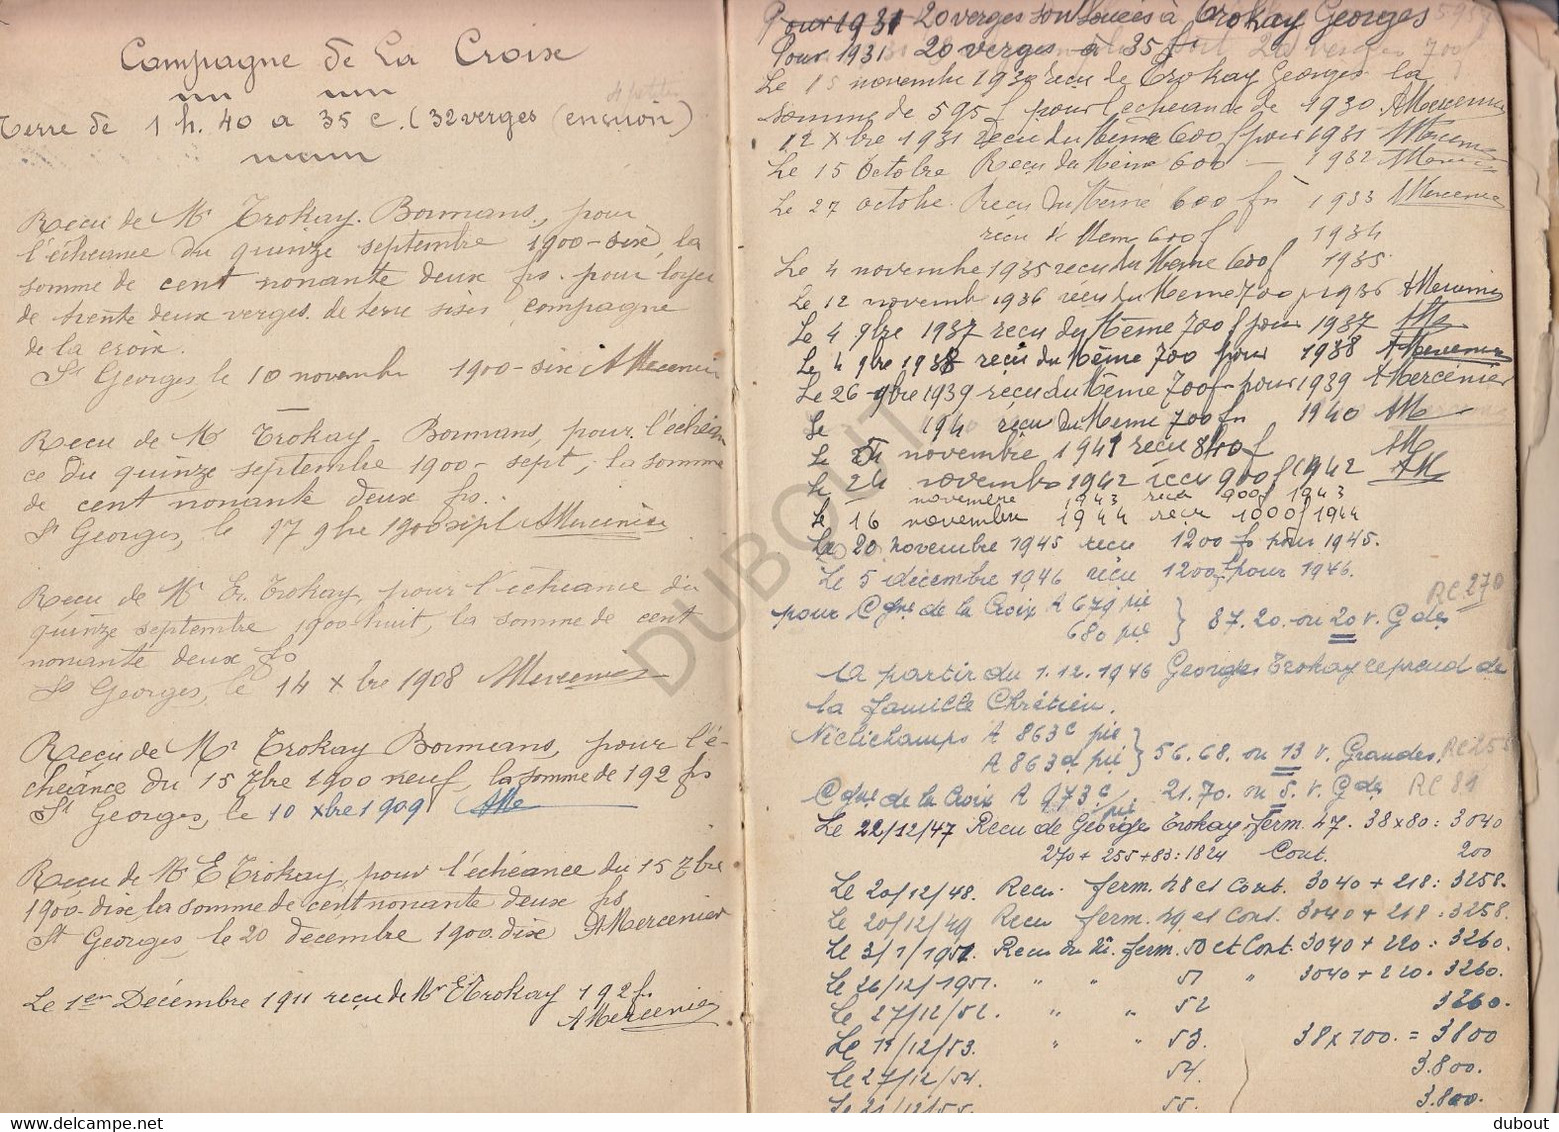 Campagne de La Croix
Terre de 1 h. 40 a 35 c. (32 verges (environ)
Recu de Mr Trokay. Bormans, pour
l'échéance du quinze septembre 1900-six, la
somme de cent nonante deux frs. pour loyer
de trente deux verges de terre sises campagne
de la croix.
St Georges, le 10 novembre 1900-six AMercenier
Recu de Mr Trokay-Bormans, pour l'échéan
ce du quinze septembre 1900-sept, la somme
de cent nonante deux frs.
St Georges, le 17 9bre 1900 sept AMercenier
Recu de Mr E. Trokay, pour l'échéance du
quinze septembre 1900-huit, la somme de cent
nonante deux frs
St Georges, le 14 Xbre 1908 AMercenier
Recu de Mr Trokay Bormans, pour l'é-
chéance du 15 7bre 1900 neuf, la somme de 192 frs
St Georges, le 10 Xbre 1909 AMe
Recu de Mr E Trokay, pour l'échéance du 15 7bre
1900-dix, la somme de cent nonante deux frs
St Georges le 20 decembre 1900.dix AMercenier
Le 1er Décembre 1911 reçu de Mr E Trokay 192 fr.
AMercenier
Pour 1931 20 verges sont louées à Trokay Georges 595
Pour 1931 20 verges à 35 fr
Le 15 novembre 1930 recu de Trokay Georges la
somme de 595 f pour l'échéance de 1930 AMercenier
12 Xbre 1931 recu du Meme 600 f pour 1931 AMercenier
Le 15 Octobre Recu du Meme 600 — 1932 AMercenier
Le 27 octobre Recu du Meme 600 fr 1933 AMercenier
recu d Mem 600 f 1934
Le 4 novembre 1935 recu du Meme 600 f 1935
Le 12 novemb 1936 récu du Meme 700 pr 1936 AMercenier
Le 4 9bre 1937 recu du Même 700 f pour 1937 AMe
Le 4 9bre 1938 recu du Même 700 pour 1938 AMercenier
Le 26 9bre 1939 recu du Même 700 f pour 1939 AMercenier
Le 1940 recu du Meme 700 fr 1940 AM
Le 24 novembre 1941 recu 840 f AM
Le 24 novembre 1942 recu 900 f 1942 AM
novembre 1943 recu 900 f 1943
Le 16 novembre 1944 recu 1000 f 1944
Le 20 novembre 1945 recu 1200 fs pour 1945.
Le 5 décembre 1946 reçu 1200 f pour 1946.
pour Cgne de la Croix A 679 pie
680 pie } 87.20. ou 20 v. Gdes RC 270
A partir du 1.12.1946 Georges Trokay reprend de
la famille Chrétien.
Néclichamps A 863c pie
A 863d pie } 56.68. ou 13 v. Grandes. RC 255
Cgne de la Croix A 973c pie 21.70. ou 5. v. Gdes RC 81
Le 22/12/47 Recu de George Trokay ferm. 47. 38 x 80 : 3040
270 + 255 + 83 : 1824 Cont. 200
Le 20/12/48. Recu. ferm. 48 et Cont. 3040 + 218 : 3258.
Le 20/12/49 Recu ferm. 49 et Cont. 3040 + 218 : 3258.
Le 3/1/1951. Recu du M. ferm. 50 et Cont. 3040 + 220 : 3260.
Le 26/12/1951. " " 51 " 3040 + 220. 3260.
Le 27/12/52. " " 52 3260.
Le 19/12/53. " " 53. 38 x 100. = 3800
Le 27/12/54. 54. 3.800.
Le 21/12/55. 55. 3.800.
DUBOUT
© delcampe.net
dubout